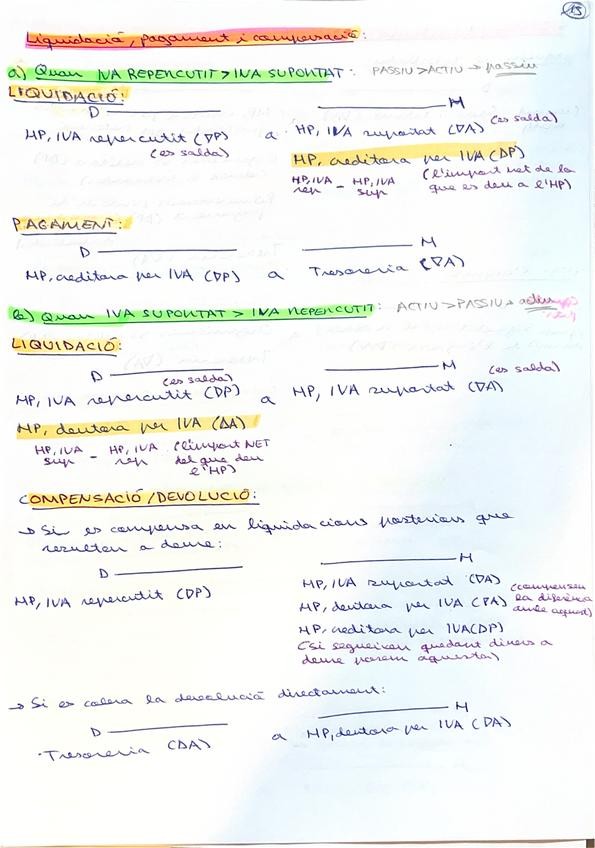 15
Liquidació, pagament i compensació:
a) Quan IVA REPERCUTIT > IVA SUPORTAT: PASSIU > ACTIU → passiu
LIQUIDACIÓ:
D M
HP, IVA repercutit (DP) a HP, IVA suportat (DA) (es salda)
(es salda)
HP, creditora per IVA (DP)
HP, IVA rep - HP, IVA sup (l'import net de lo que es deu a l'HP)
PAGAMENT:
D M
HP, creditora per IVA (DP) a Tresoreria (∇A)
b) Quan IVA SUPORTAT > IVA REPERCUTIT: ACTIU > PASSIU → actiu
LIQUIDACIÓ:
D M
(es salda) (es salda)
HP, IVA repercutit (DP) a HP, IVA suportat (∇A)
HP, deutora per IVA (ΔA)
HP, IVA sup - HP, IVA rep (l'import NET del que deu l'HP)
COMPENSACIÓ/DEVOLUCIÓ:
→ Si es compensa en liquidacions posteriors que
resulten a deure:
D M
HP, IVA repercutit (DP) HP, IVA suportat (DA)
HP, deutora per IVA (DA) (compensem la diferència amb aquest)
HP, creditora per IVA (DP)
(Si segueixen quedant diners a
deure posem aquesta)
→ Si es cobra la devolució directament:
D M
Tresoreria (DA) a HP, deutora per IVA (DA)